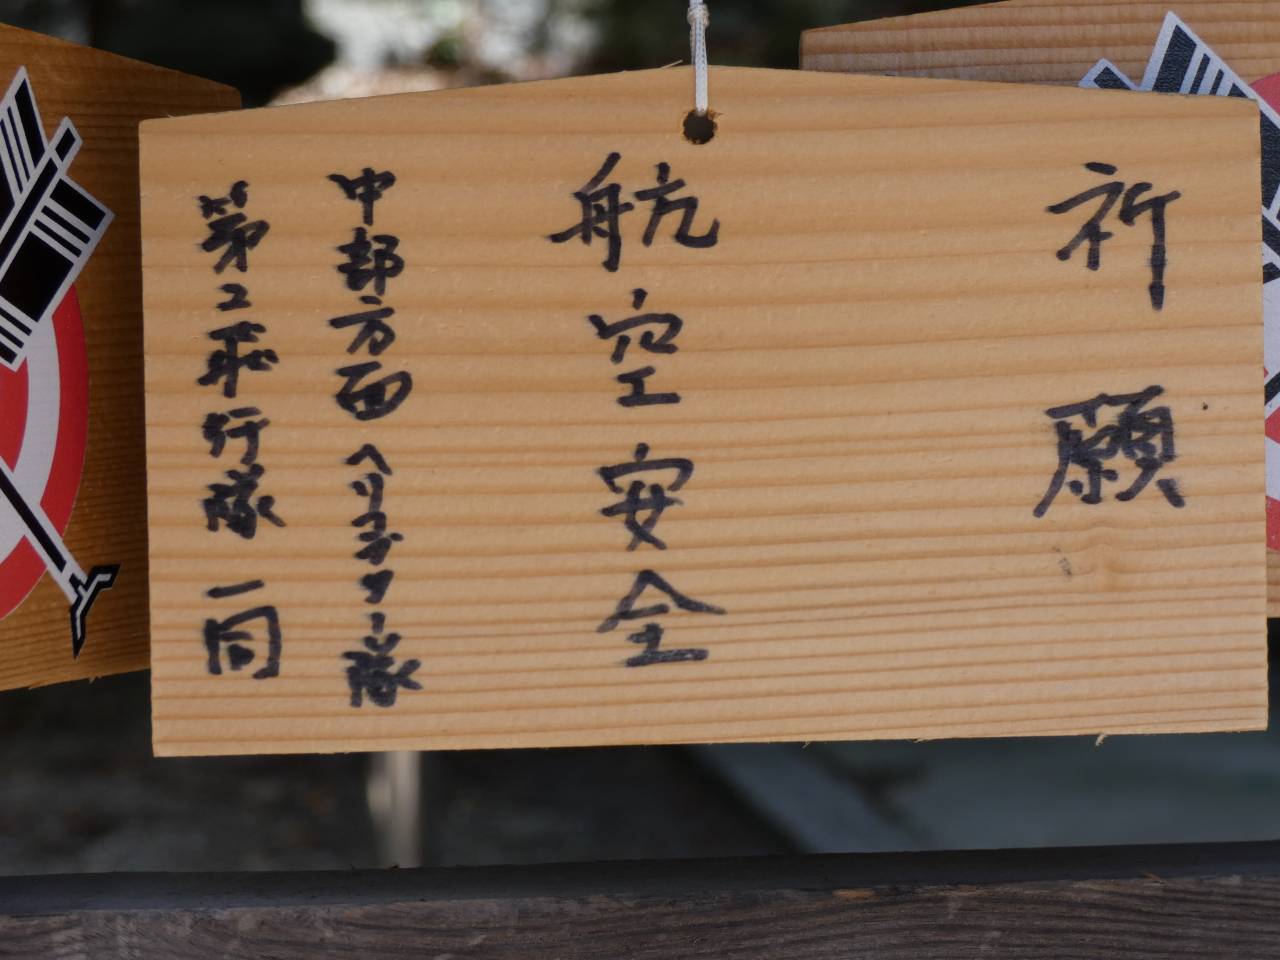 祈願
航空安全
中部方面ヘリコプター隊
第2飛行隊 一同